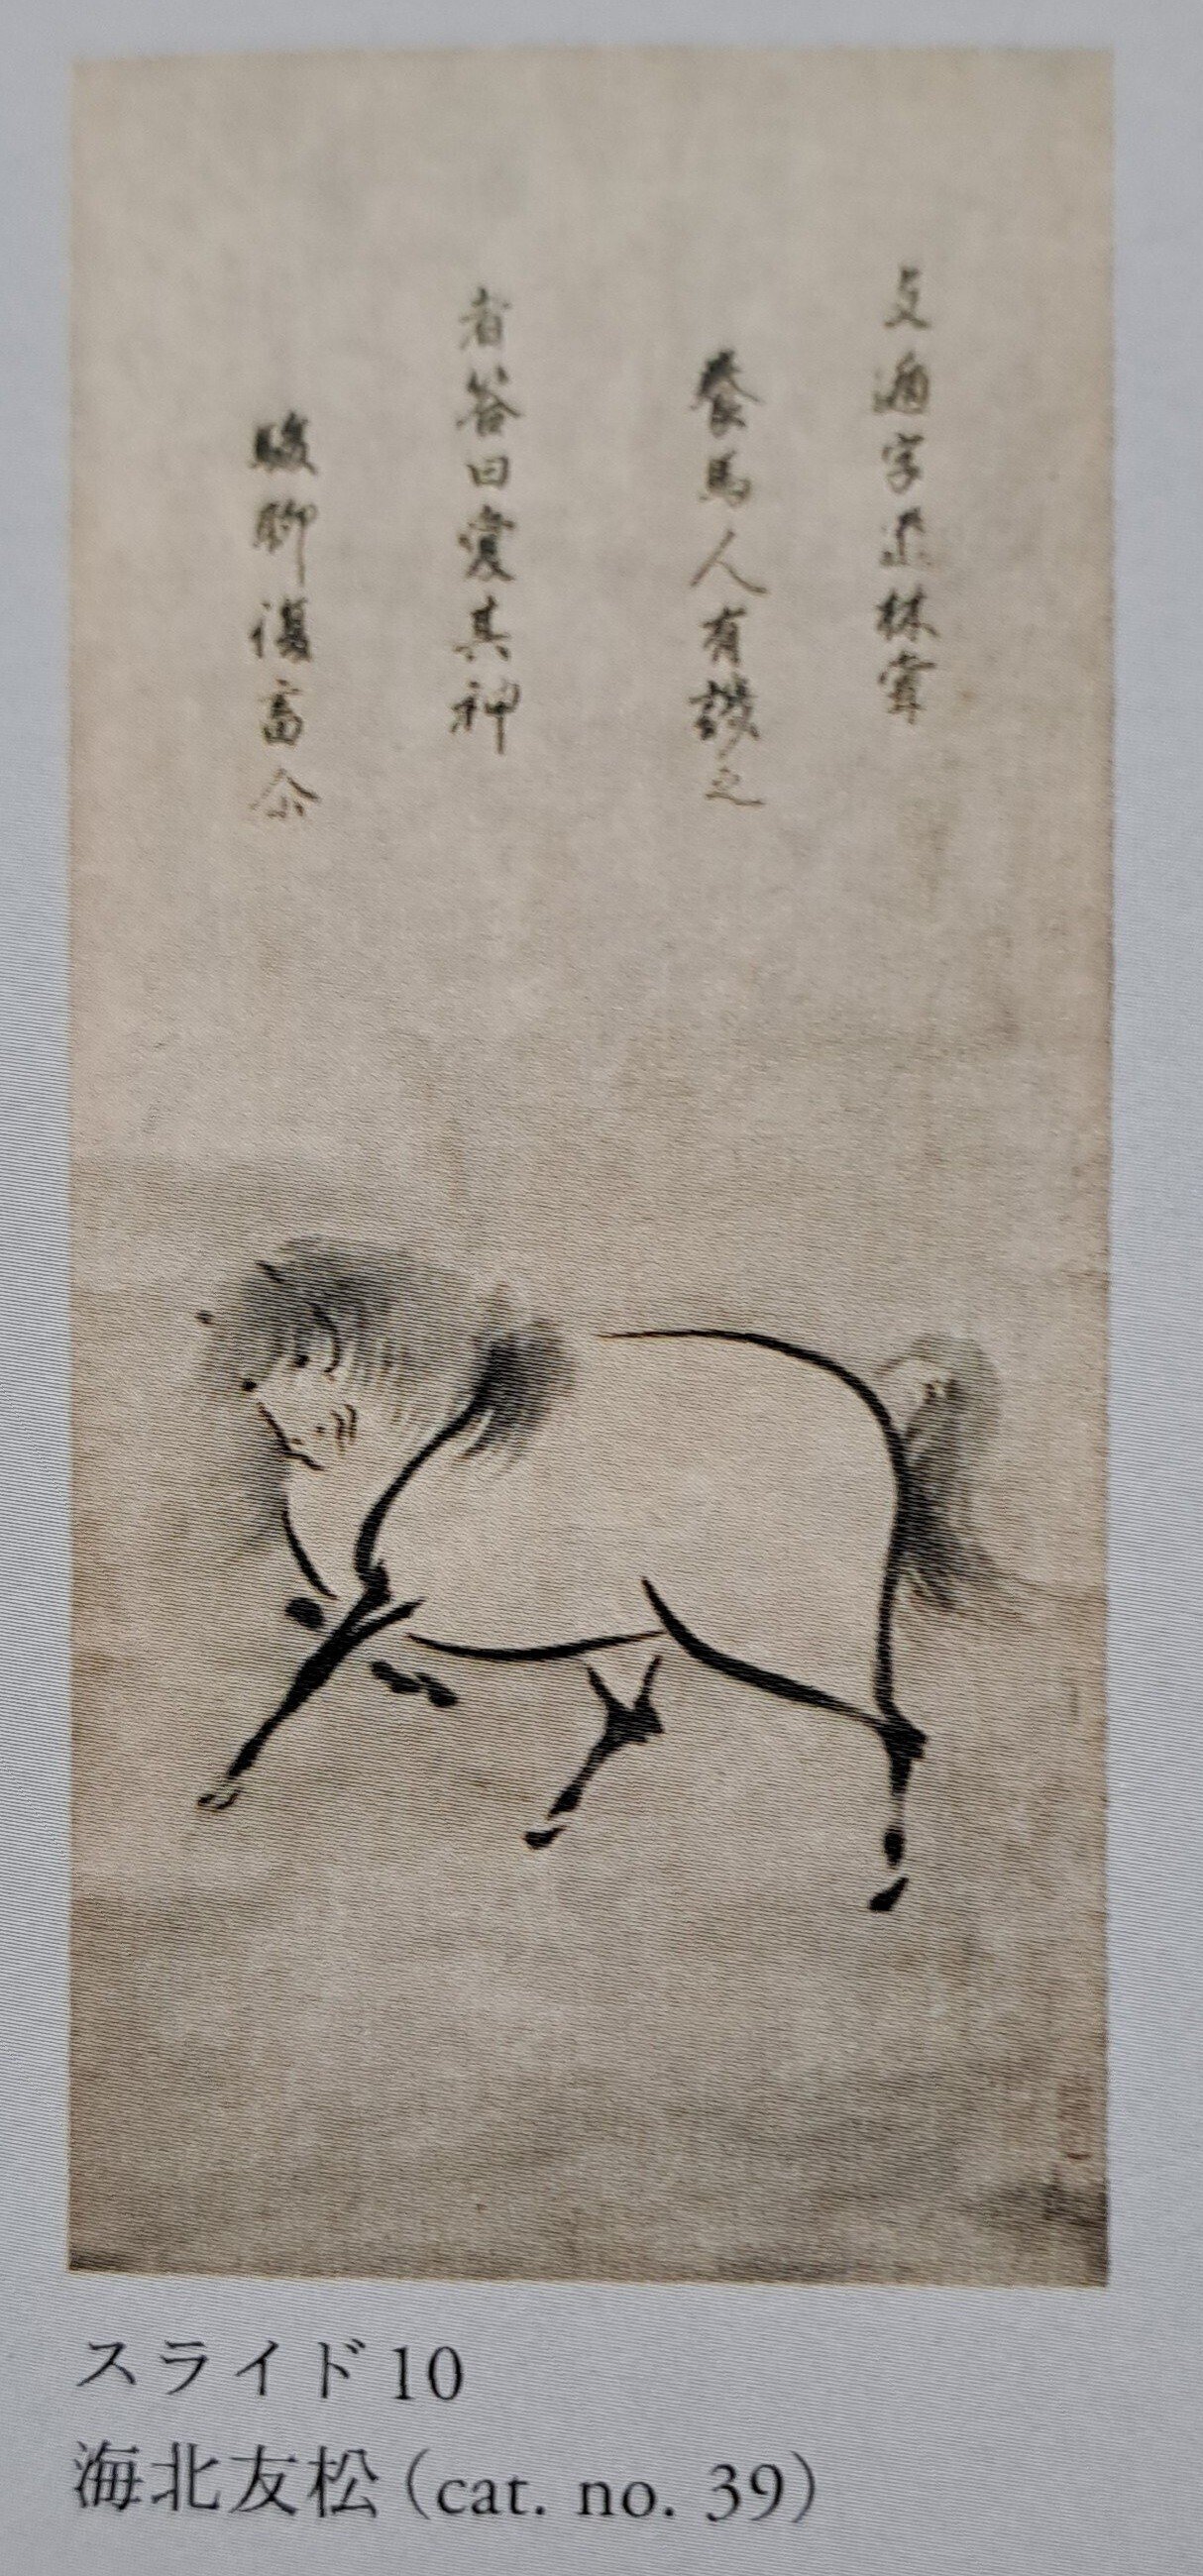 支遁字道林常
養馬人有譏之
者答曰愛其神
駿聊復畜尒
スライド10
海北友松（cat. no. 39）